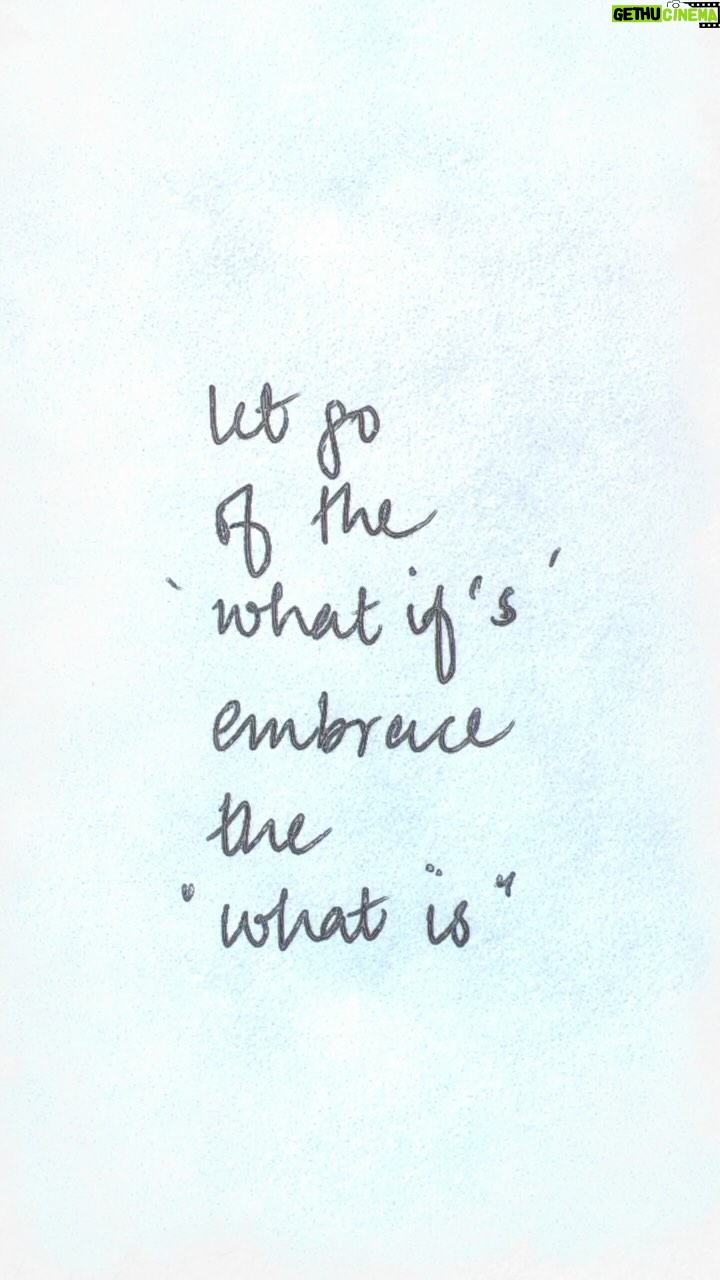 GETHU CINEMA
let go
of the
'what if's'
embrace
the
"what is"